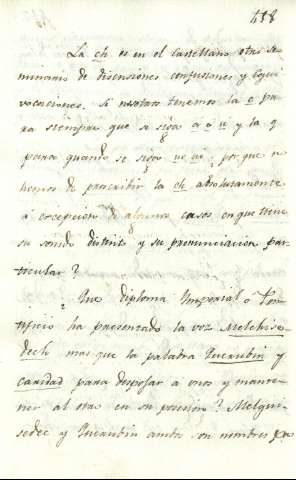 438
La ch es en el Castellano otro se
minario de disensiones confusiones y equi
vocaciones. Si nosotros tenemos la c pa
ra siempre que se siga a o u y la q
para quando se siga ue ui, por que no
hemos de proscribir la ch absolutamente
á excepcion de algunos casos en que tiene
su sonido distinto y su pronunciacion par
ticular?
¿Que diploma Ymperial o Pon
tificio ha presentado la voz Melchise
dech mas que la palabra Querubin y
caridad para despojar a unos y mante
ner al otro en su posesion? Melqui
sedec y Querubin ambos son nombres